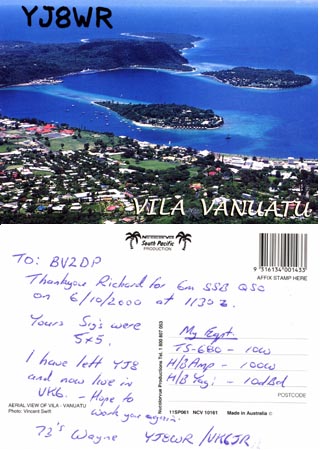 YJ8WR
VILA VANUATU
NUCOLORVUE
South Pacific
PRODUCTION
9 316134 001433
AFFIX STAMP HERE
TO: BV2DP
Thankyou Richard for 6m SSB QSO
on 6/10/2000 at 1130z.
Yours Sig's were
5x5.
I have left YJ8
and now live in
VK6. - Hope to
work you again.
73's Wayne YJ8WR/VK6JR
My Eqpt.
TS-680 - 10w
H/B Amp - 100w
H/B Yagi - 10dBd
Nucolorvue Productions Tel. 1 800 807 063
POSTCODE
AERIAL VIEW OF VILA - VANUATU
Photo: Vincent Swift
11SP061 NCV 10161
Made in Australia ©